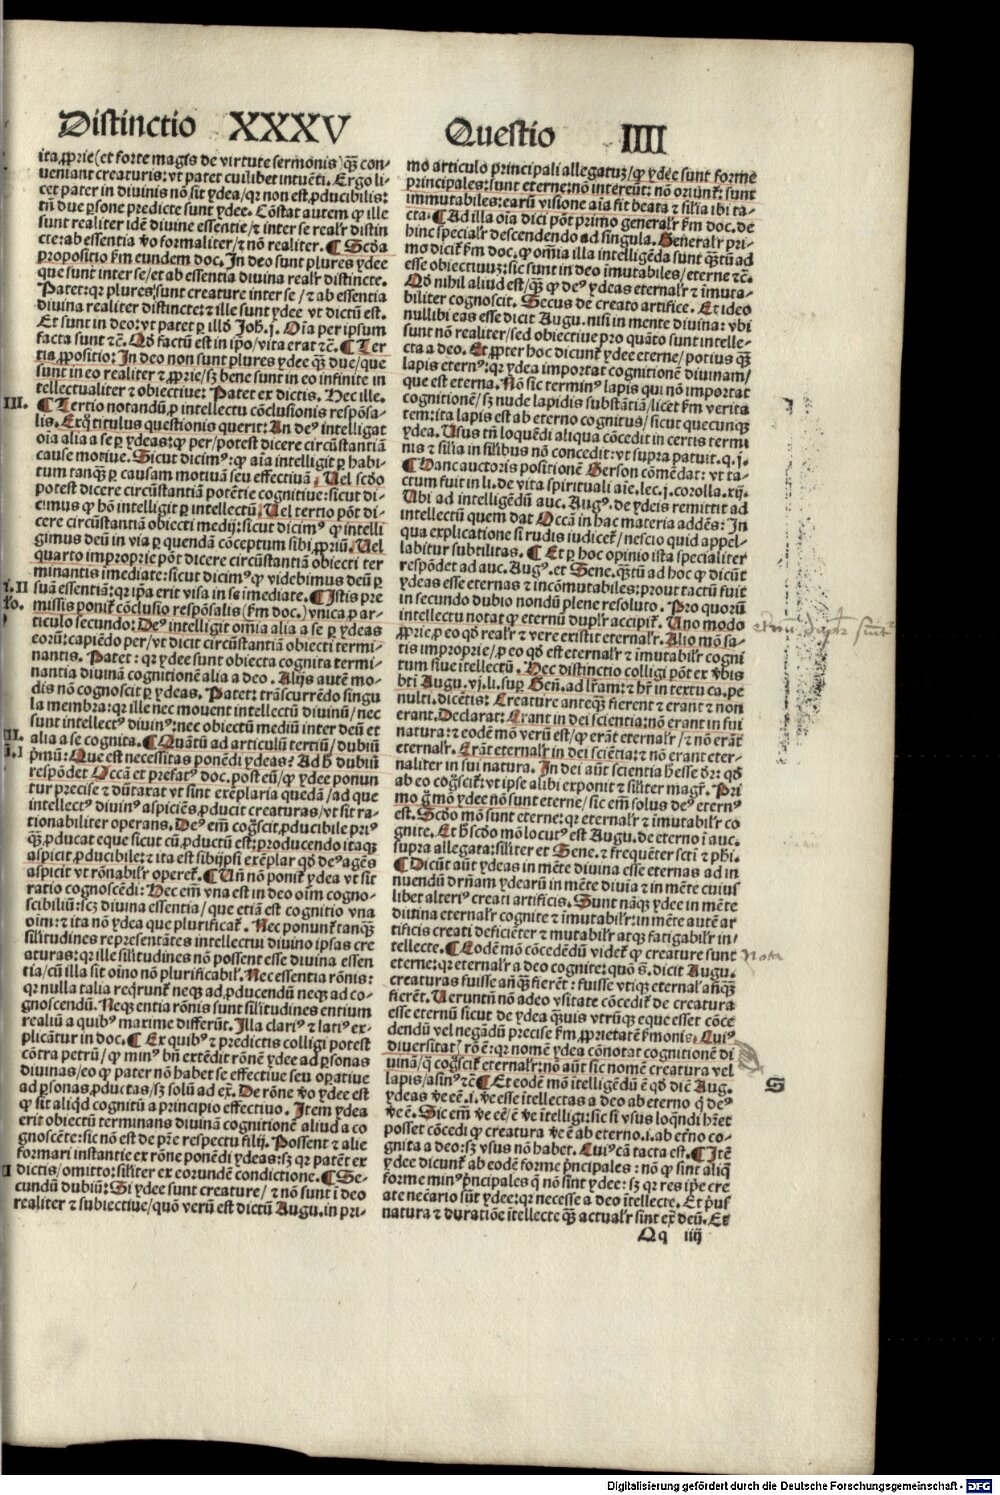 Distinctio XXXV
Questio IIII
ita ꝓprie (et forte magis de virtute sermonis) qᷓꝫ con-
ueniant creaturis: vt patet cuilibet intuēti. Ergo li-
cet pater in diuinis nō sit ydea/ qr non est ꝓducibilis:
tn̄ due ꝑsone predicte sunt ydee. Cōstat autem ꝙ ille
sunt realiter idē diuine essentie/ ⁊ inter se realr̄ distin
cte: ab essentia v̄o formaliter/ ⁊ nō realiter. ¶ Scd̓a
propositio ẜm eundem doc. In deo sunt plures ydee
que sunt inter se/ et ab essentia diuina realr̄ distincte.
Patet: qr plures sunt creature inter se/ ⁊ ab essentia
diuina realiter distincte: ⁊ ille sunt ydee vt dictū est.
Et sunt in deo: vt patet ꝑ illd̓ Joh̄. j. Oīa per ipsum
facta sunt ⁊c̄. Qd̓ factū est in ip̄o/ vita erat ⁊c̄. ¶ Ter
tia ꝓpositio: In deo non sunt plures ydee qᷓꝫ due/ que
sunt in eo realiter ⁊ ꝓprie/ sꝫ bene sunt in eo infinite in
tellectualiter ⁊ obiectiue: Patet ex dictis. Hec ille.
III. ¶ Tertio notandū ꝓ intellectu cōclusionis respōsa-
lis. Exqͦ titulus questionis querit: An deꝰ intelligat
oīa alia a se ꝑ ydeas: ꝙ per/ potest dicere circūstantiā
cause motiue. Sicut dicimꝰ: ꝙ aīa intelligit ꝑ habi-
tum tanqᷓꝫ ꝑ causam motiuā seu effectiuā. Uel scd̓o
potest dicere circūstantiā potētie cognitiue: sicut di-
cimus ꝙ hō intelligit ꝑ intellectū. Uel tertio pōt di-
cere circūstantiā obiecti medij: sicut dicimꝰ ꝙ intelli
gimus deū in via ꝑ quendā cōceptum sibi ꝓpriū. Uel
quarto improprie pōt dicere circūstantiā obiecti ter
minantis imediate: sicut dicimꝰ ꝙ videbimus deū ꝑ
suā essentiā: qr ip̄a erit visa in se imediate. ¶ Istis pre
missis ponit̄ cōclusio respōsalis (ẜm doc.) vnica ꝓ ar-
ticulo secundo: Deꝰ intelligit om̄ia alia a se ꝑ ydeas
eorū: capiēdo per/ vt dicit circūstantiā obiecti termi-
nantis. Patet: qr ydee sunt obiecta cognita termi-
nantia diuinā cognitionē alia a deo. Alijs autē mo-
dis nō cognoscit ꝑ ydeas. Patet: trāscurrēdo singu
la membra: qr ille nec mouent intellectū diuinū/ nec
sunt intellectꝰ diuinꝰ: nec obiectū mediū inter deū et
alia a se cognita. ¶ Quātū ad articulū tertiū/ dubiū
p̄mū: Que est necessitas ponēdi ydeas? Ad h̄ dubiū
respōdet Occā et prefatꝰ doc. post eū/ ꝙ ydee ponun
tur precise ⁊ dūtaxat vt sint exēplaria quedā/ ad que
intellectꝰ diuinꝰ aspiciēs ꝓducit creaturas/ vt sit ra-
tionabiliter operans. Deꝰ em̄ cog̓scit ꝓducibile priꝰ
qᷓꝫ ꝓducat eque sicut cū ꝓductū est: producendo itaqꝫ
aspicit ꝓducibile: ⁊ ita est sibijpsi exēplar qd̓ deꝰ agēs
aspicit vt rōnabilr̄ operet̄. ¶ Uñ nō ponit̄ ydea vt sit
ratio cognoscēdi: Hec em̄ vna est in deo oīm cogno-
scibiliū: scꝫ diuina essentia/ que etiā est cognitio vna
oīm: ⁊ ita nō ydea que plurificat̄. Nec ponunt̄ tanqᷓꝫ
sil̓itudines representātes intellectui diuino ipsas cre
aturas: qr ille sil̓itudines nō possent esse diuina essen
tia/ cū illa sit oīno nō plurificabil̓. Nec essentia rōnis:
qr nulla talia reqrunt̄ neqꝫ ad ꝓducendū neqꝫ ad co-
gnoscendū. Neqꝫ entia rōnis sunt sil̓itudines entium
realiū a quibꝰ maxime differūt. Illa clariꝰ ⁊ latiꝰ ex-
plicātur in doc. ¶ Ex quibꝰ ⁊ predictis colligi potest
cōtra petrū/ ꝙ minꝰ bn̄ extēdit rōnē ydee ad ꝑsonas
diuinas/ eo ꝙ pater nō habet se effectiue seu oꝑatiue
ad ꝑsonas ꝓductas/ sꝫ solū ad ex̄. De rōne v̄o ydee est
ꝙ sit aliqd̓ cognitū a principio effectiuo. Item ydea
erit obiectū terminans diuinā cognitionē aliud a co
gnoscēte: sic nō est de pr̄e respectu filij. Possent ⁊ alie
formari instantie ex rōne ponēdi ydeas: sꝫ qr patēt ex
dictis/ omitto: sil̓iter ex eorundē condictione. ¶ Se-
cundū dubiū: Si ydee sunt creature/ ⁊ nō sunt ī deo
realiter ⁊ subiectiue/ quō verū est dictū Augu. in pri-
mo articulo principali allegatuꝫ/ ꝙ ydee sunt forme
principales: sunt eterne: nō intereūt: nō oriunt̄: sunt
immutabiles: earū visione aīa fit beata ⁊ sil̓ia ibi ta-
cta. ¶ Ad illa oīa dici pōt primo generalr̄ ẜm doc. de
hinc specialr̄ descendendo ad singula. Generalr̄ pri-
mo dicit̄ ẜm doc. ꝙ om̄ia illa intelligēda sunt qᷓꝫtū ad
esse obiectiuuꝫ: sic sunt in deo imutabiles/ eterne ⁊c̄.
Qd̓ nihil aliud est/ qᷓꝫ ꝙ deꝰ ydeas eternalr̄ ⁊ īmuta-
biliter cognoscit. Secus de creato artifice. Et ideo
nullibi eas esse dicit Augu. nisi in mente diuina: vbi
sunt nō realiter/ sed obiectiue pro quāto sunt intelle-
cta a deo. Et ꝓpter hoc dicunt̄ ydee eterne/ potius qᷓꝫ
lapis eternꝰ: qr ydea importat cognitionē diuinam/
que est eterna. Nō sic terminꝰ lapis qui nō importat
cognitionē/ sꝫ nude lapidis substātiā/ licet ẜm verita
tem: ita lapis est ab eterno cognitus/ sicut quecunqꝫ
ydea. Usus tn̄ loquēdi aliqua cōcedit in certis termi
nis ⁊ sil̓ia in sil̓ibus nō concedit: vt supra patuit. q. j.
¶ Hanc auctoris positionē Gerson cōmēdat: vt ta-
ctum fuit in li. de vita spirituali aīe. lec. j. corolla. xij.
Ubi ad intelligēdū auc. Augꝰ. de ydeis remittit ad
intellectū quem dat Occā in hac materia addēs: In
qua explicatione si rudis iudicer̄/ nescio quid appel-
labitur subtilitas. ¶ Et ꝑ hoc opinio ista specialiter
respōdet ad auc. Augꝰ. et Sene. qᷓꝫtū ad hoc ꝙ dicūt
ydeas esse eternas ⁊ incōmutabiles: prout tactū fuit
in secundo dubio nondū plene resoluto. Pro quorū
intellectu notat ꝙ eternū duplr̄ accipit̄. Uno modo
ꝓprie/ ꝓ eo qd̓ realr̄ ⁊ vere existit eternalr̄. Alio mō sa-
tis improprie/ ꝓ eo qd̓ est eternalr̄ ⁊ īmutabilr̄ cogni
tum siue ītellectū. Hec distinctio colligi pōt ex v̄bis
bt̄i Augu. vj. li. suꝑ Gen̄. ad lr̄am: ⁊ hr̄ in textu ca. pe
nulti. dicētis: Creature anteqᷓꝫ fierent ⁊ erant ⁊ non
erant. Declarat: Erant in dei scientia: nō erant in sui
natura: ⁊ eodē mō verū est/ ꝙ erāt eternalr̄/ ⁊ nō erāt
eternalr̄. Erāt eternalr̄ in dei sciētia: ⁊ nō erant eter-
naliter in sui natura. In dei aūt scientia h̄ esse dr̄: qd̓
ab eo cog̓scit̄: vt ipse alibi exponit ⁊ sil̓iter magr̄. Pri
mo g̓ mō ydee nō sunt eterne/ sic em̄ solus deꝰ eternꝰ
est. Scd̓o mō sunt eterne: qr eternalr̄ ⁊ īmutabilr̄ co
gnite. Et h̄ scd̓o mō locutꝰ est Augu. de eterno ī auc.
supra allegata: sil̓iter et Sene. ⁊ frequēter scti ⁊ ph̄i.
¶ Dicūt aūt ydeas in mēte diuina esse eternas ad in
nuendū dr̄nam ydearū in mēte diuīa ⁊ in mēte cuius
libet alteriꝰ creati artificis. Sunt nāqꝫ ydee in mēte
diuina eternalr̄ cognite ⁊ īmutabilr̄: in mēte autē ar
tificis creati deficiēter ⁊ mutabilr̄ atqꝫ fatigabilr̄ in/
tellecte. ¶ Eodē mō cōcedēdū videt̄ ꝙ creature sunt
eterne: qr eternalr̄ a deo cognite: quō s. dicit Augu.
creaturas fuisse an̄qᷓꝫ fierēt: fuisse vtiqꝫ eternalr̄ an̄qᷓꝫ
fierēt. Ueruntn̄ nō adeo vsitate cōcedit̄ de creatura
esse eternū sicut de ydea qᷓuis vtrūqꝫ eque esset cōce
dendū vel negādū precise ẜm ꝓprietatē ẜmonis. Cuiꝰ
diuersitatꝭ rō ē: qr nomē ydea cōnotat cognitionē di
uinā/ q̄ cog̓scit̄ eternalr̄: nō aūt sic nomē creatura vel
lapis/ asinꝰ ⁊c̄ ¶ Et eodē mō ītelligēdū ē qd̓ dic̄ Aug.
ydeas v̄e cē. i. v̄e esse ītellectas a deo ab eterno q̄ deꝰ
v̄e ē. Sic em̄ v̄e cē/ ē v̄e ītelligi: sic si vsus loqn̄di hr̄et
posset cōcedi ꝙ creatura v̄e ē ab eterno. i. ab et̄no co-
gnita a deo: sꝫ vsus nō habet. Cuiꝰ cā tacta est. ¶ Itē
ydee dicunt̄ ab eodē forme p̄ncipales: nō ꝙ sint aliq̄
forme minꝰ p̄ncipales q̄ nō sint ydee: sꝫ qr res ip̄e cre
ate nec̄ario sūt ydee: qr necesse a deo ītellecte. Et p̄us
natura ⁊ duratiōe ītellecte qᷓꝫ actualr̄ sint ex̄ deū. Et
Nota
S
Qq iiij
Digitalisierung gefördert durch die Deutsche Forschungsgemeinschaft - DFG